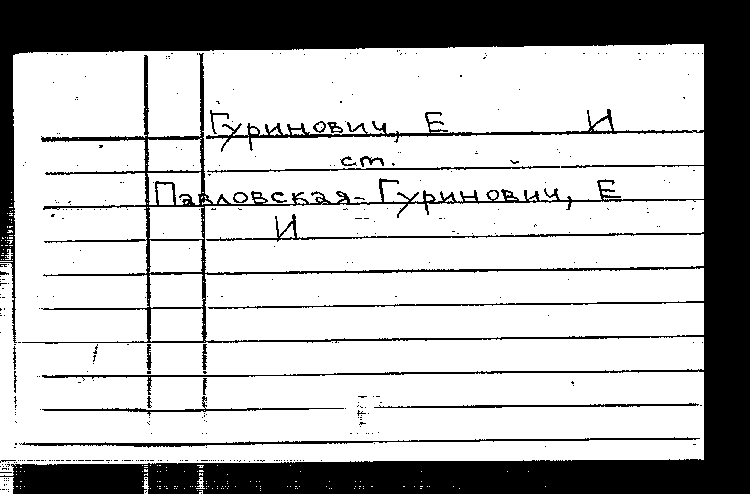 Гуринович, Е И
ст.
Павловская-Гуринович, Е
И